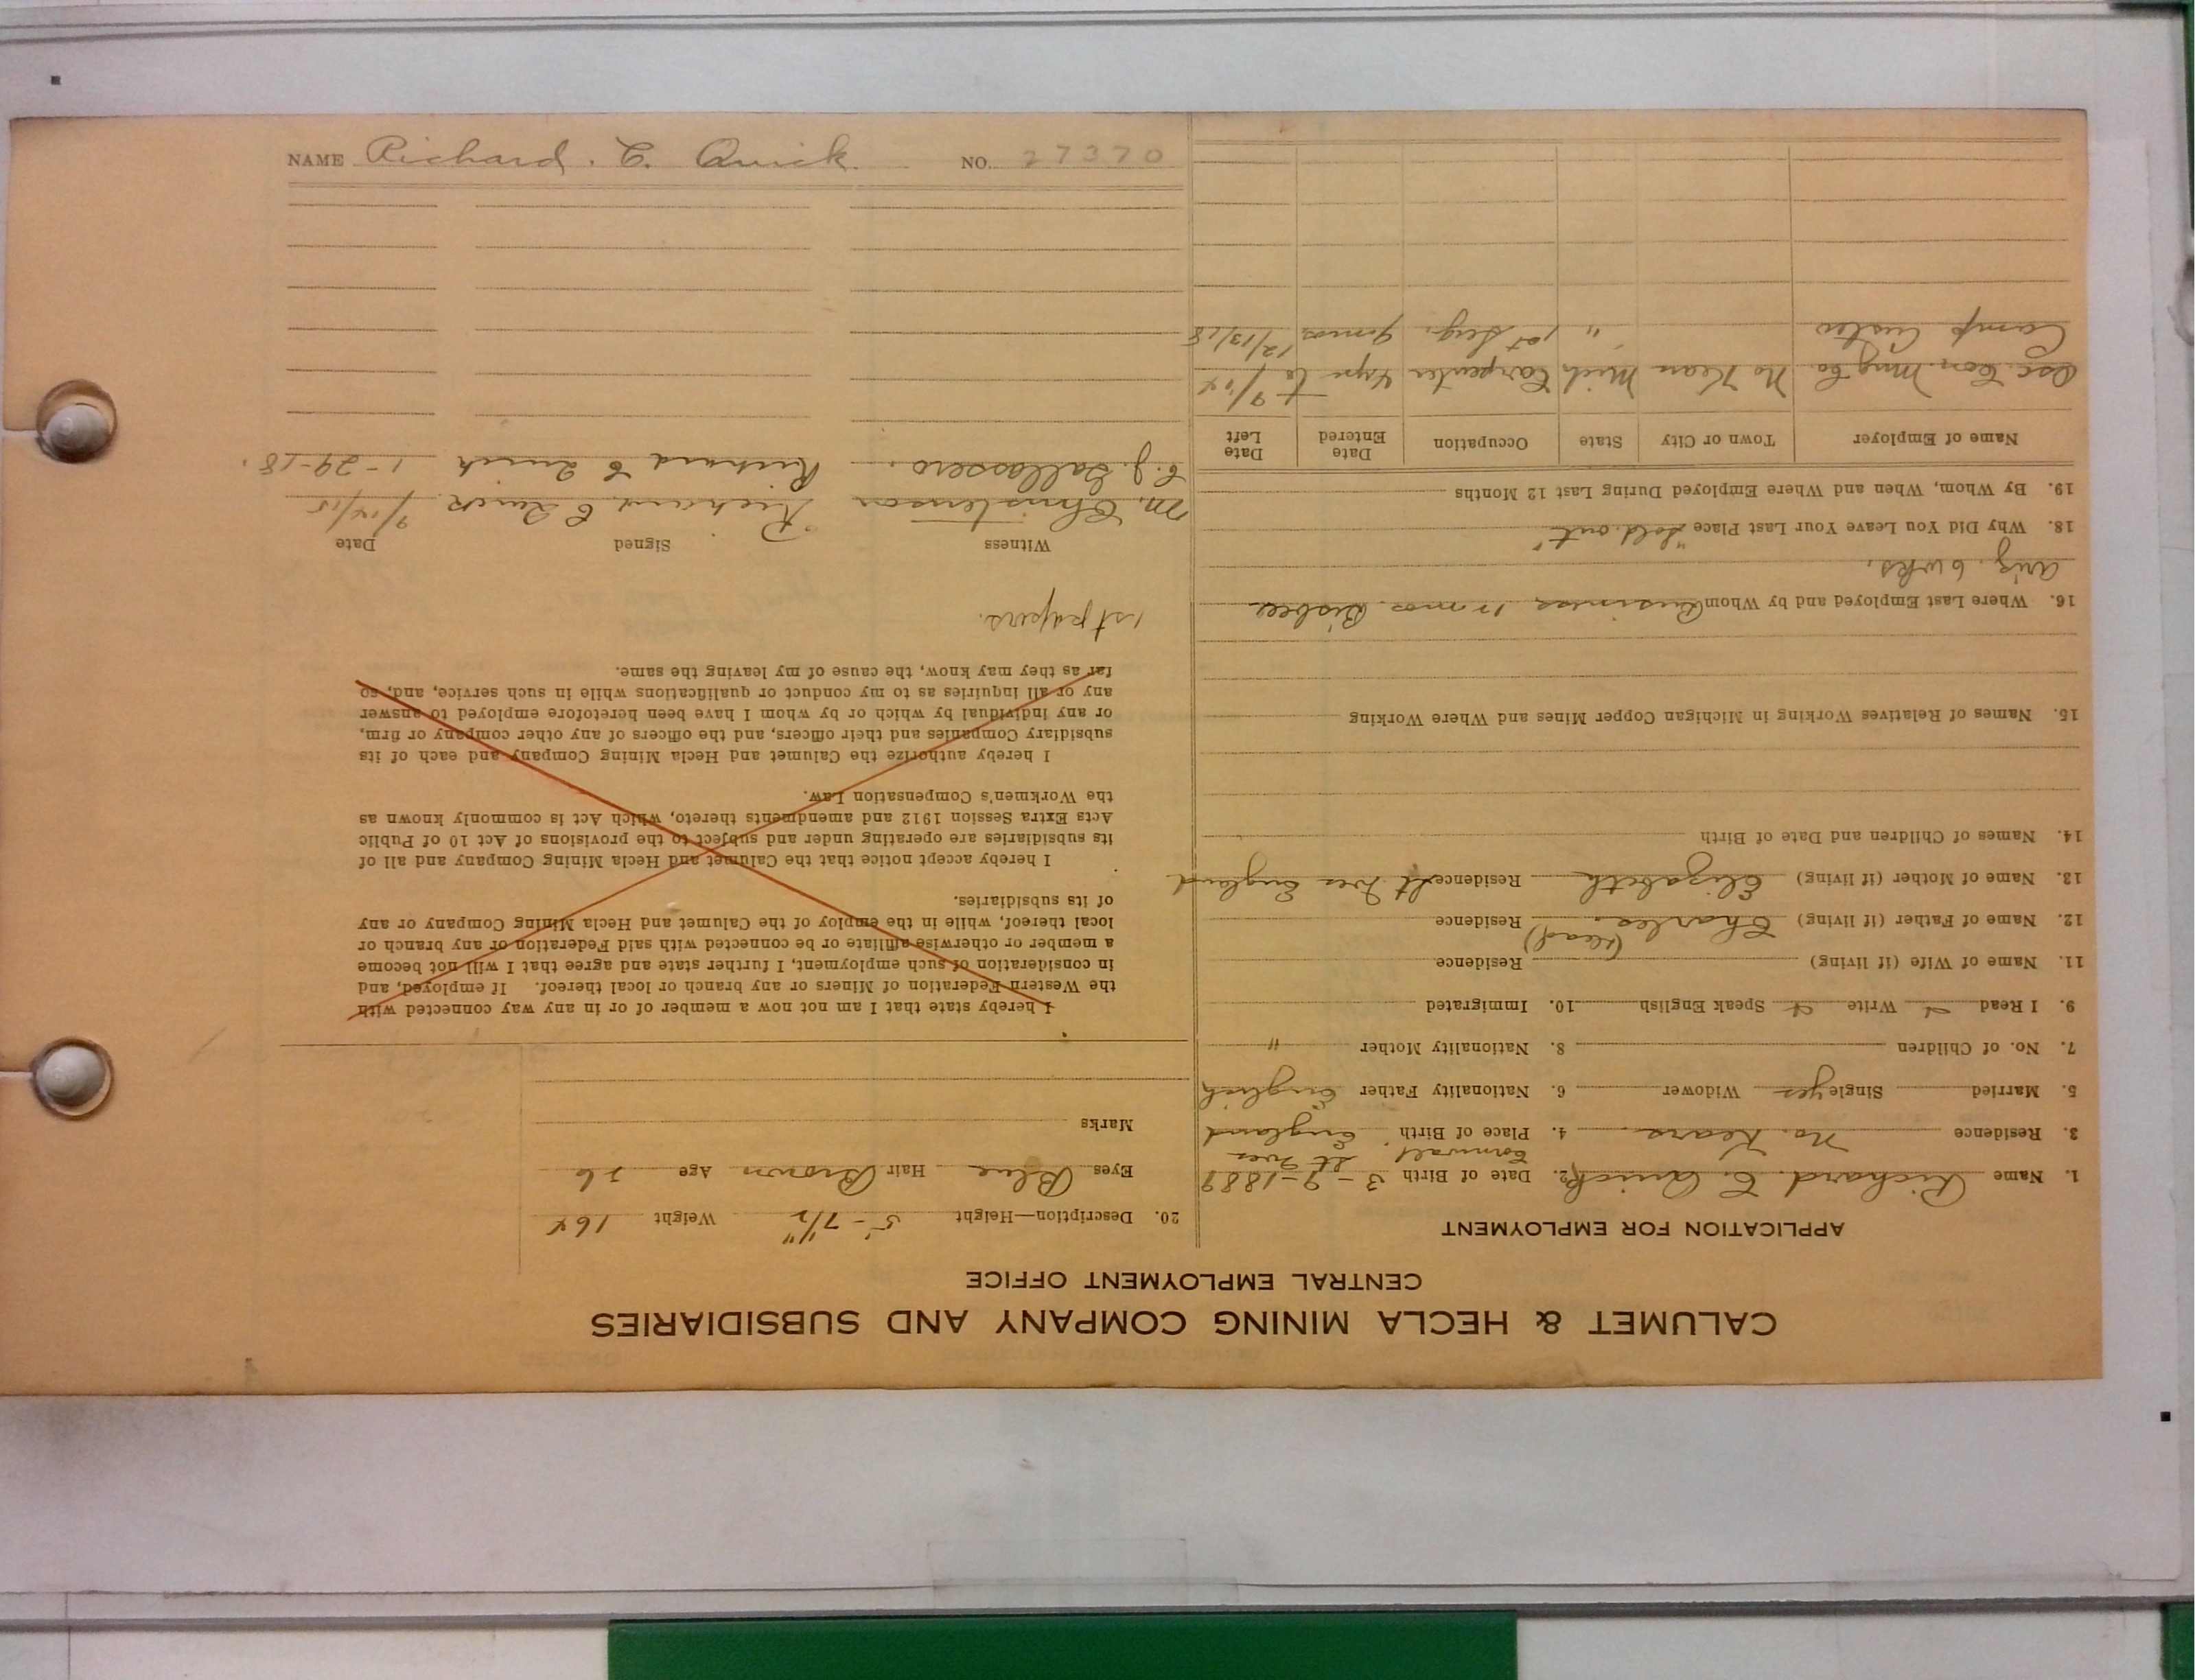 NAME Richard. C. Quick. NO. 27370
CALUMET & HECLA MINING COMPANY AND SUBSIDIARIES
CENTRAL EMPLOYMENT OFFICE
APPLICATION FOR EMPLOYMENT
1. Name Richard. C. Quick 2. Date of Birth 3-9-1889
Cornwall St Ives
3. Residence No. Kears. 4. Place of Birth England
5. Married Single yes Widower 6. Nationality Father English
7. No. of Children 8. Nationality Mother "
9. I Read Write Speak English 10. Immigrated
11. Name of Wife (if living) Residence
12. Name of Father (if living) Charles. (dead) Residence
13. Name of Mother (if living) Elizabeth Residence St Ives England
14. Names of Children and Date of Birth
15. Names of Relatives Working in Michigan Copper Mines and Where Working
16. Where Last Employed and by Whom Business 11 mos. Bisbee
Ariz. 6 wks.
18. Why Did You Leave Your Last Place "Sold out"
19. By Whom, When and Where Employed During Last 12 Months
Name of Employer Town or City State Occupation Date Entered Date Left
Osc. Con. Mng Co No Kear Mich Carpenter 4 yrs
Camp Custer " 1st Serg. 9 mos. 12/13/18
20. Description—Height 5'-7 1/2" Weight 164
Eyes Blue Hair Brown Age 26
Marks
I hereby state that I am not now a member of or in any way connected with
the Western Federation of Miners or any branch or local thereof. If employed, and
in consideration of such employment, I further state and agree that I will not become
a member or otherwise affiliate or be connected with said Federation or any branch or
local thereof, while in the employ of the Calumet and Hecla Mining Company or any
of its subsidiaries.
I hereby accept notice that the Calumet and Hecla Mining Company and all of
its subsidiaries are operating under and subject to the provisions of Act 10 of Public
Acts Extra Session 1912 and amendments thereto, which Act is commonly known as
the Workmen's Compensation Law.
I hereby authorize the Calumet and Hecla Mining Company and each of its
subsidiary Companies and their officers, and the officers of any other company or firm,
or any individual by which or by whom I have been heretofore employed to answer
any or all inquiries as to my conduct or qualifications while in such service, and, so
far as they may know, the cause of my leaving the same.
1st papers.
Witness Signed Date
M. Christenson Richard C Quick 9/14/15
C. J. Gallassero. Richard C Quick 1-29-18.